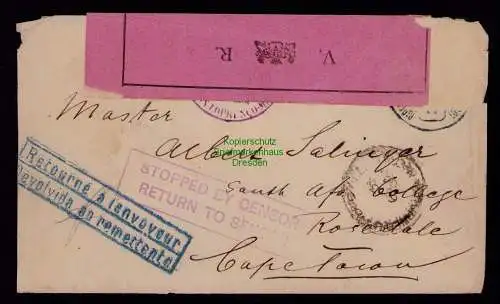 V. R.
Master
Albert Salinger
South Afr. College
Rosedale
Capetown
STOPPED BY CENSOR
RETURN TO
Retourné à l'envoyeur
evolvida ao remettente
Kopierschutz
Briefmarkenhaus
Dresden